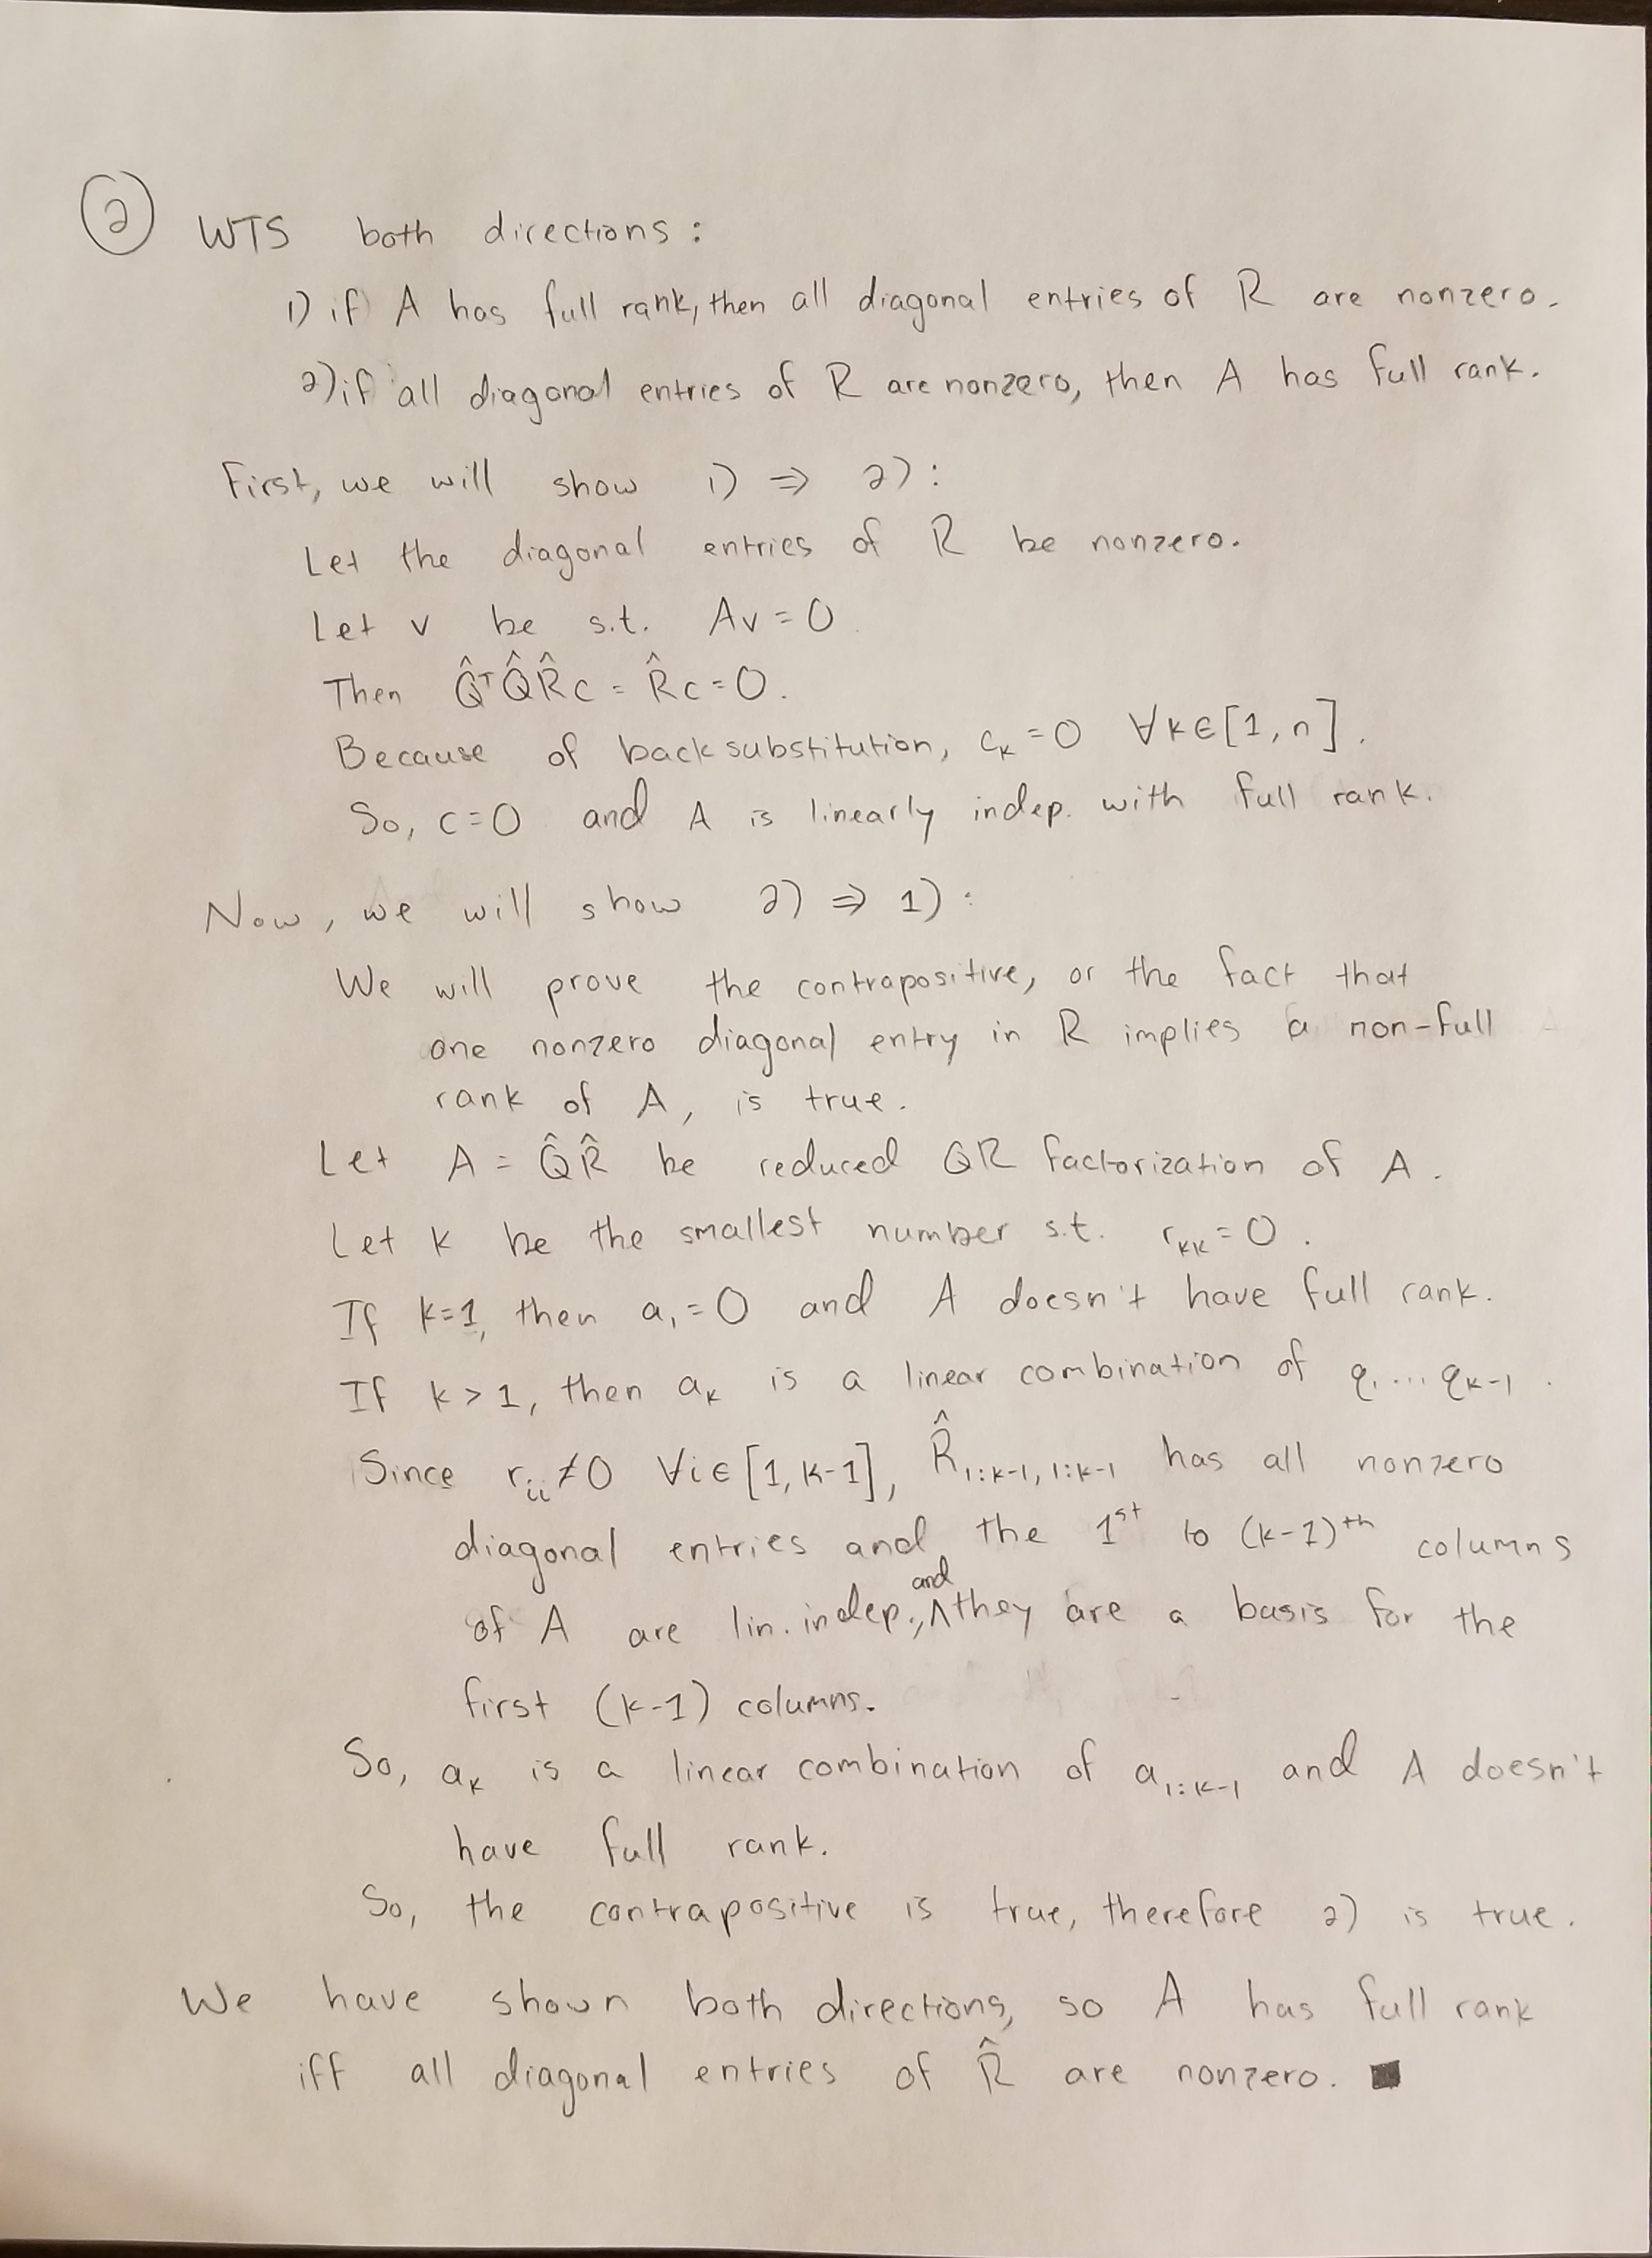 ② WTS both directions:
1) if A has full rank, then all diagonal entries of R are nonzero.
2) if all diagonal entries of R are nonzero, then A has full rank.
First, we will show 1) ⇒ 2):
Let the diagonal entries of R be nonzero.
Let v be s.t. Av = 0
Then Q̂ᵀQ̂R̂c = R̂c = 0.
Because of back substitution, cₖ = 0 ∀k∈[1,n].
So, c=0 and A is linearly indep. with full rank.
Now, we will show 2) ⇒ 1):
We will prove the contrapositive, or the fact that
one nonzero diagonal entry in R implies a non-full
rank of A, is true.
Let A = Q̂R̂ be reduced QR factorization of A.
Let k be the smallest number s.t. rₖₖ = 0.
If k=1, then a₁ = 0 and A doesn't have full rank.
If k > 1, then aₖ is a linear combination of q₁ ... qₖ₋₁.
Since rᵢᵢ ≠ 0 ∀i∈[1,k-1], R̂₁:ₖ₋₁,₁:ₖ₋₁ has all nonzero
diagonal entries and the 1ˢᵗ to (k-1)ᵗʰ columns
of A are lin. indep., and they are a basis for the
first (k-1) columns.
So, aₖ is a linear combination of a₁:ₖ₋₁ and A doesn't
have full rank.
So, the contrapositive is true, therefore 2) is true.
We have shown both directions, so A has full rank
iff all diagonal entries of R̂ are nonzero. ■